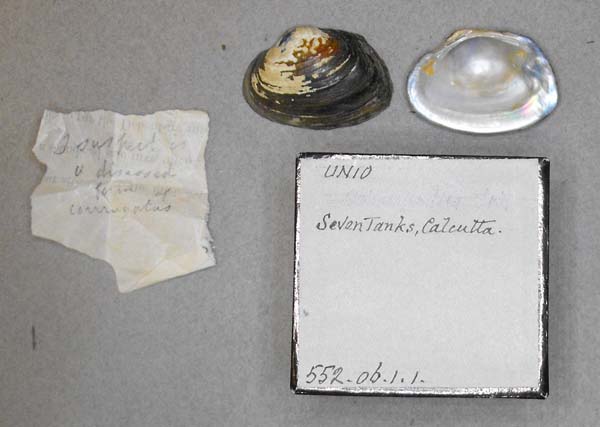 I suspect is
a diseased
form of
corrugatus
UNIO
Seven Tanks, Calcutta.
552-06.1.1.